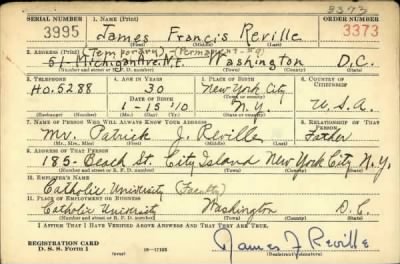 3373
SERIAL NUMBER 1. NAME (Print) ORDER NUMBER
3995 James Francis Reville 3373
(First) (Middle) (Last)
2. ADDRESS (Print) (Temporary) - (Permanent - #9)
51 - Michigan Ave. Washington D.C.
(Number and street or R. F. D. number) (Town) (County) (State)
3. TELEPHONE 4. AGE IN YEARS 5. PLACE OF BIRTH 6. COUNTRY OF CITIZENSHIP
Ho. 5288 30 New York City
DATE OF BIRTH (Town or county)
1-15 10 N.Y. U.S.A.
(Exchange) (Number) (Mo.) (Day) (Yr.) (State or country)
7. NAME OF PERSON WHO WILL ALWAYS KNOW YOUR ADDRESS 8. RELATIONSHIP OF THAT PERSON
Mr. Patrick J. Reville Father
(Mr., Mrs., Miss) (First) (Middle) (Last)
9. ADDRESS OF THAT PERSON
185 - Beach St. City Island New York City N.Y.
(Number and street or R. F. D. number) (Town) (County) (State)
10. EMPLOYER'S NAME
Catholic University (Faculty)
11. PLACE OF EMPLOYMENT OR BUSINESS
Catholic University Washington D.C.
(Number and street or R. F. D. number) (Town) (County) (State)
I AFFIRM THAT I HAVE VERIFIED ABOVE ANSWERS AND THAT THEY ARE TRUE.
REGISTRATION CARD
D. S. S. Form 1 (over) James J Reville
(Registrant's signature)